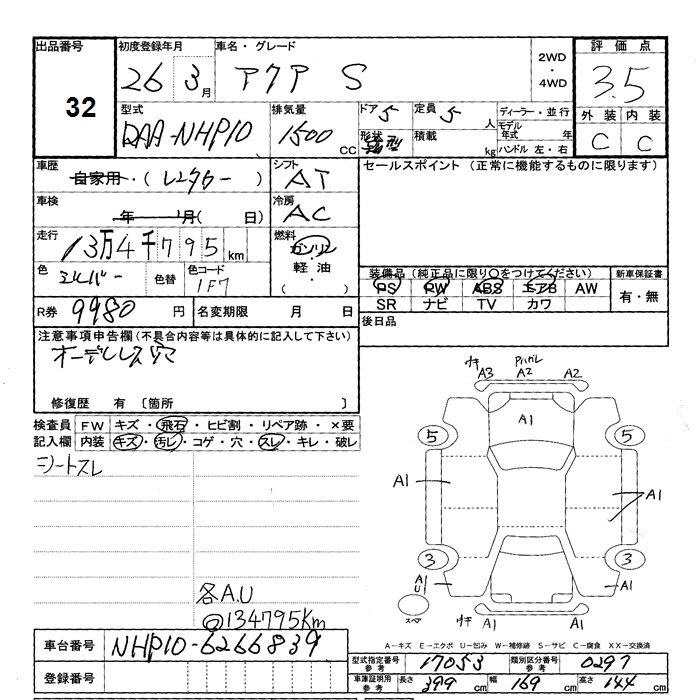 出品番号 32
初度登録年月 26 3月
車名・グレード アクア S
2WD ・ 4WD
評価点 3.5
外装 C 内装 C
型式 DAA-NHP10
排気量 1500 CC
ドア 5 形状
定員 5 人
積載 kg
ディーラー・並行
モデル年式 年
ハンドル 左・右
車歴 自家用・(レンタカー)
シフト AT
セールスポイント (正常に機能するものに限ります)
車検 年 月( 日)
冷房 AC
走行 13万4千795km
燃料 ガソリン・軽油・( )
色 シルバー 色替 色コード 1F7
装備品(純正品に限り○をつけてください)
PS PW ABS エアB AW
SR ナビ TV カワ
新車保証書 有・無
R券 9980 円
名変期限 月 日
後日品
注意事項申告欄(不具合内容等は具体的に記入して下さい)
オーデレス穴
修復歴 有 〔箇所 〕
検査員記入欄
FW キズ・飛石・ヒビ割・リペア跡・×要
内装 キズ・汚レ・コゲ・穴・スレ・キレ・破レ
シートスレ
各A.U
@134795Km
ウキ A3 A2 A2
A1
5 5
A1 A1
3 3
AU A1
スペア
ウキ A1 A1
車台番号 NHP10-6266839
登録番号
A-キズ E-エクボ U-凹み W-補修跡 S-サビ C-腐食 XX-交換済
型式指定番号参考 17053 類別区分番号参考 0297
車庫証明用参考 長さ 399 cm 幅 169 cm 高さ 144 cm